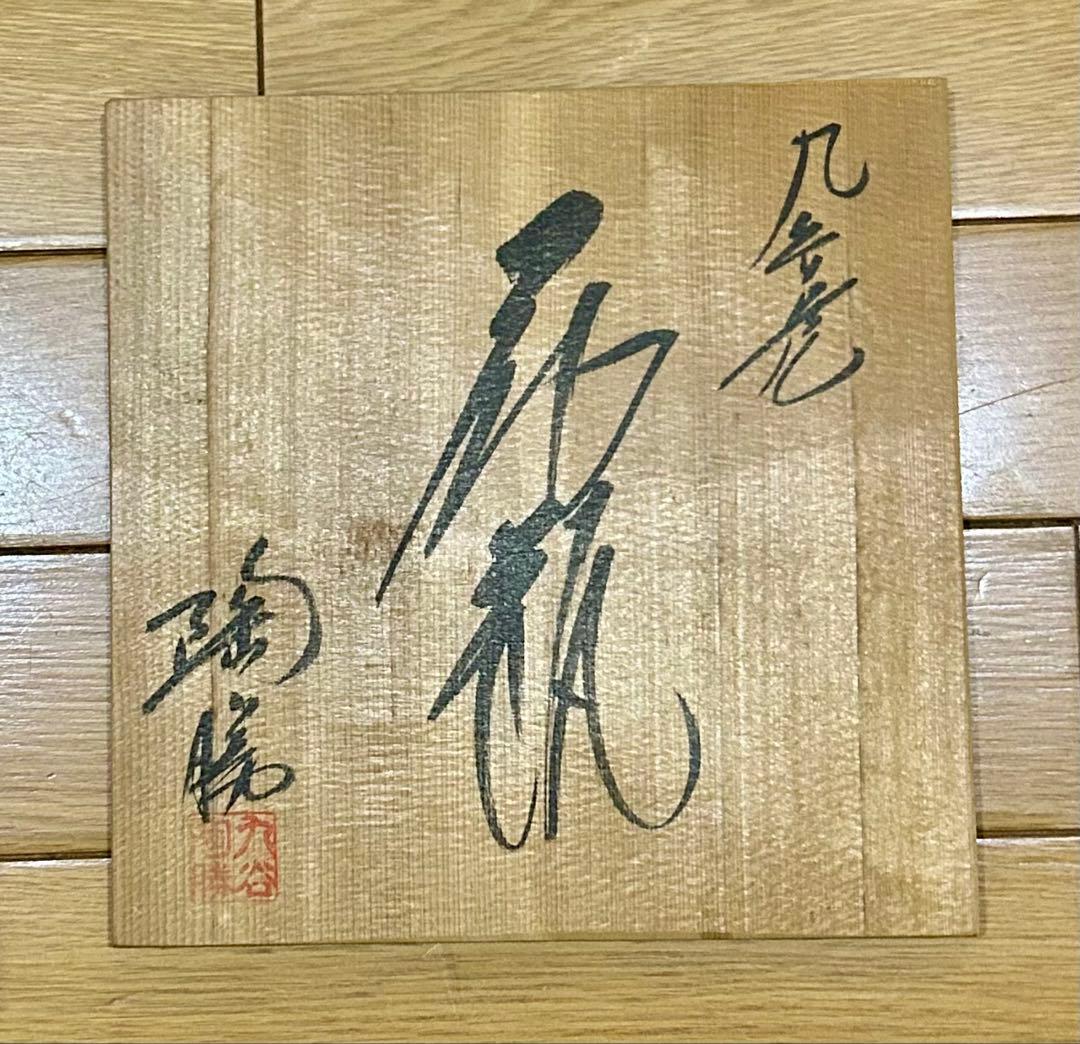 九谷窯
花瓶
陶勝
九谷
陶勝